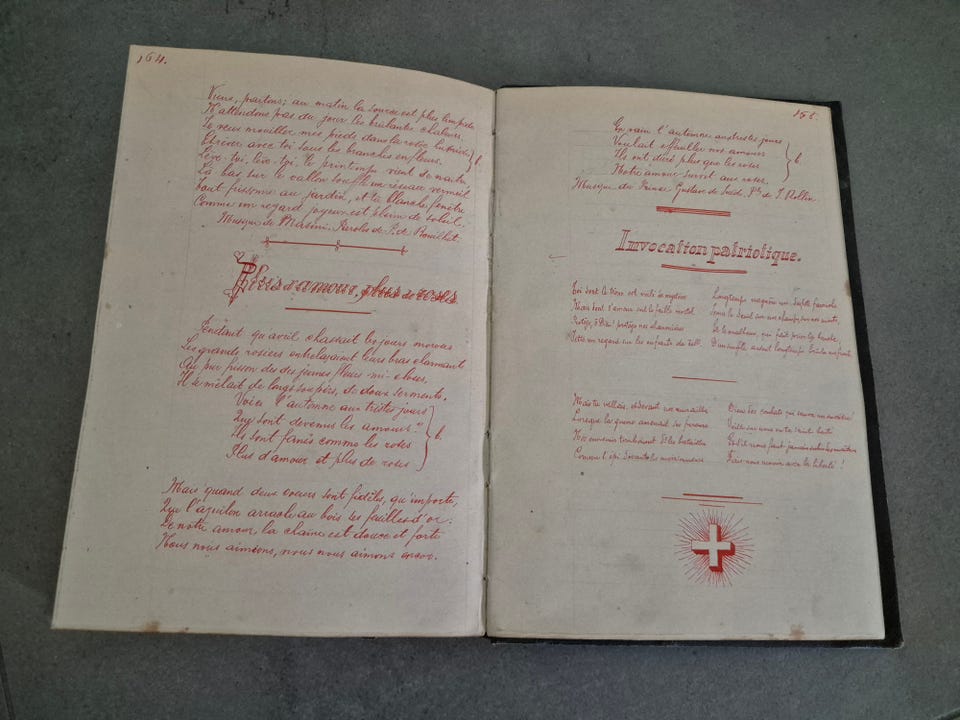 164.
Viens, partons; au matin la source est plus limpide
N'attendons pas du jour les brûlantes chaleurs.
Je veux mouiller mes pieds dans la rosée humide
Et rêver avec toi sous les branches en fleurs. } b.
Lève-toi, lève-toi, le printemps vient de naître
Là bas sur le vallon souffle un réseau vermeil
Tout frissonne au jardin, et ta blanche fenêtre
Comme un regard joyeux est plein de soleil.
Musique de Massini. Paroles de J. de Bouilhet.
Plus d'amour, plus de roses
Pendant qu'avril chassait les jours moroses
Les grands rosiers
Qui pur frisson des des jeunes fleurs mi-closes,
Il se mêlait de longs soupirs, de doux serments.
Voici l'automne aux tristes jours
Que sont devenus les amours
Ils sont fanés comme les roses
Plus d'amour et plus de roses } b.
Mais quand deux coeurs sont fidèles, qu'importe,
Que l'aquilon arrache au bois ses feuilles d'or.
De notre amour la chaîne est douce et forte
Nous nous aimions, nous nous aimons encor.
165.
En vain l'automne aux tristes jours
Voulait effeuiller nos amours
Ils ont duré plus que les roses
Notre amour survit aux roses. } b.
Musique du Prince Gustave de Suède. Ples de J. Rollin
Invocation patriotique.
Toi dont le trône est voilé de mystère
Mais dont l'amour suit le faible mortel
Protège, ô Dieu! protège nos chaumières
Jette un regard sur les enfants de Tell.
Longtemps
Mais tu veillais, observant nos murailles
Lorsque la guerre amenait ses fureurs
Nos ennemis tombaient dans les batailles
Comme l'épi devant les moissonneurs
Dieu des combats
Veille sur nous en ta sainte bonté
Et s'il nous faut jamais subir des maîtres
Fais-nous mourir avec la liberté!